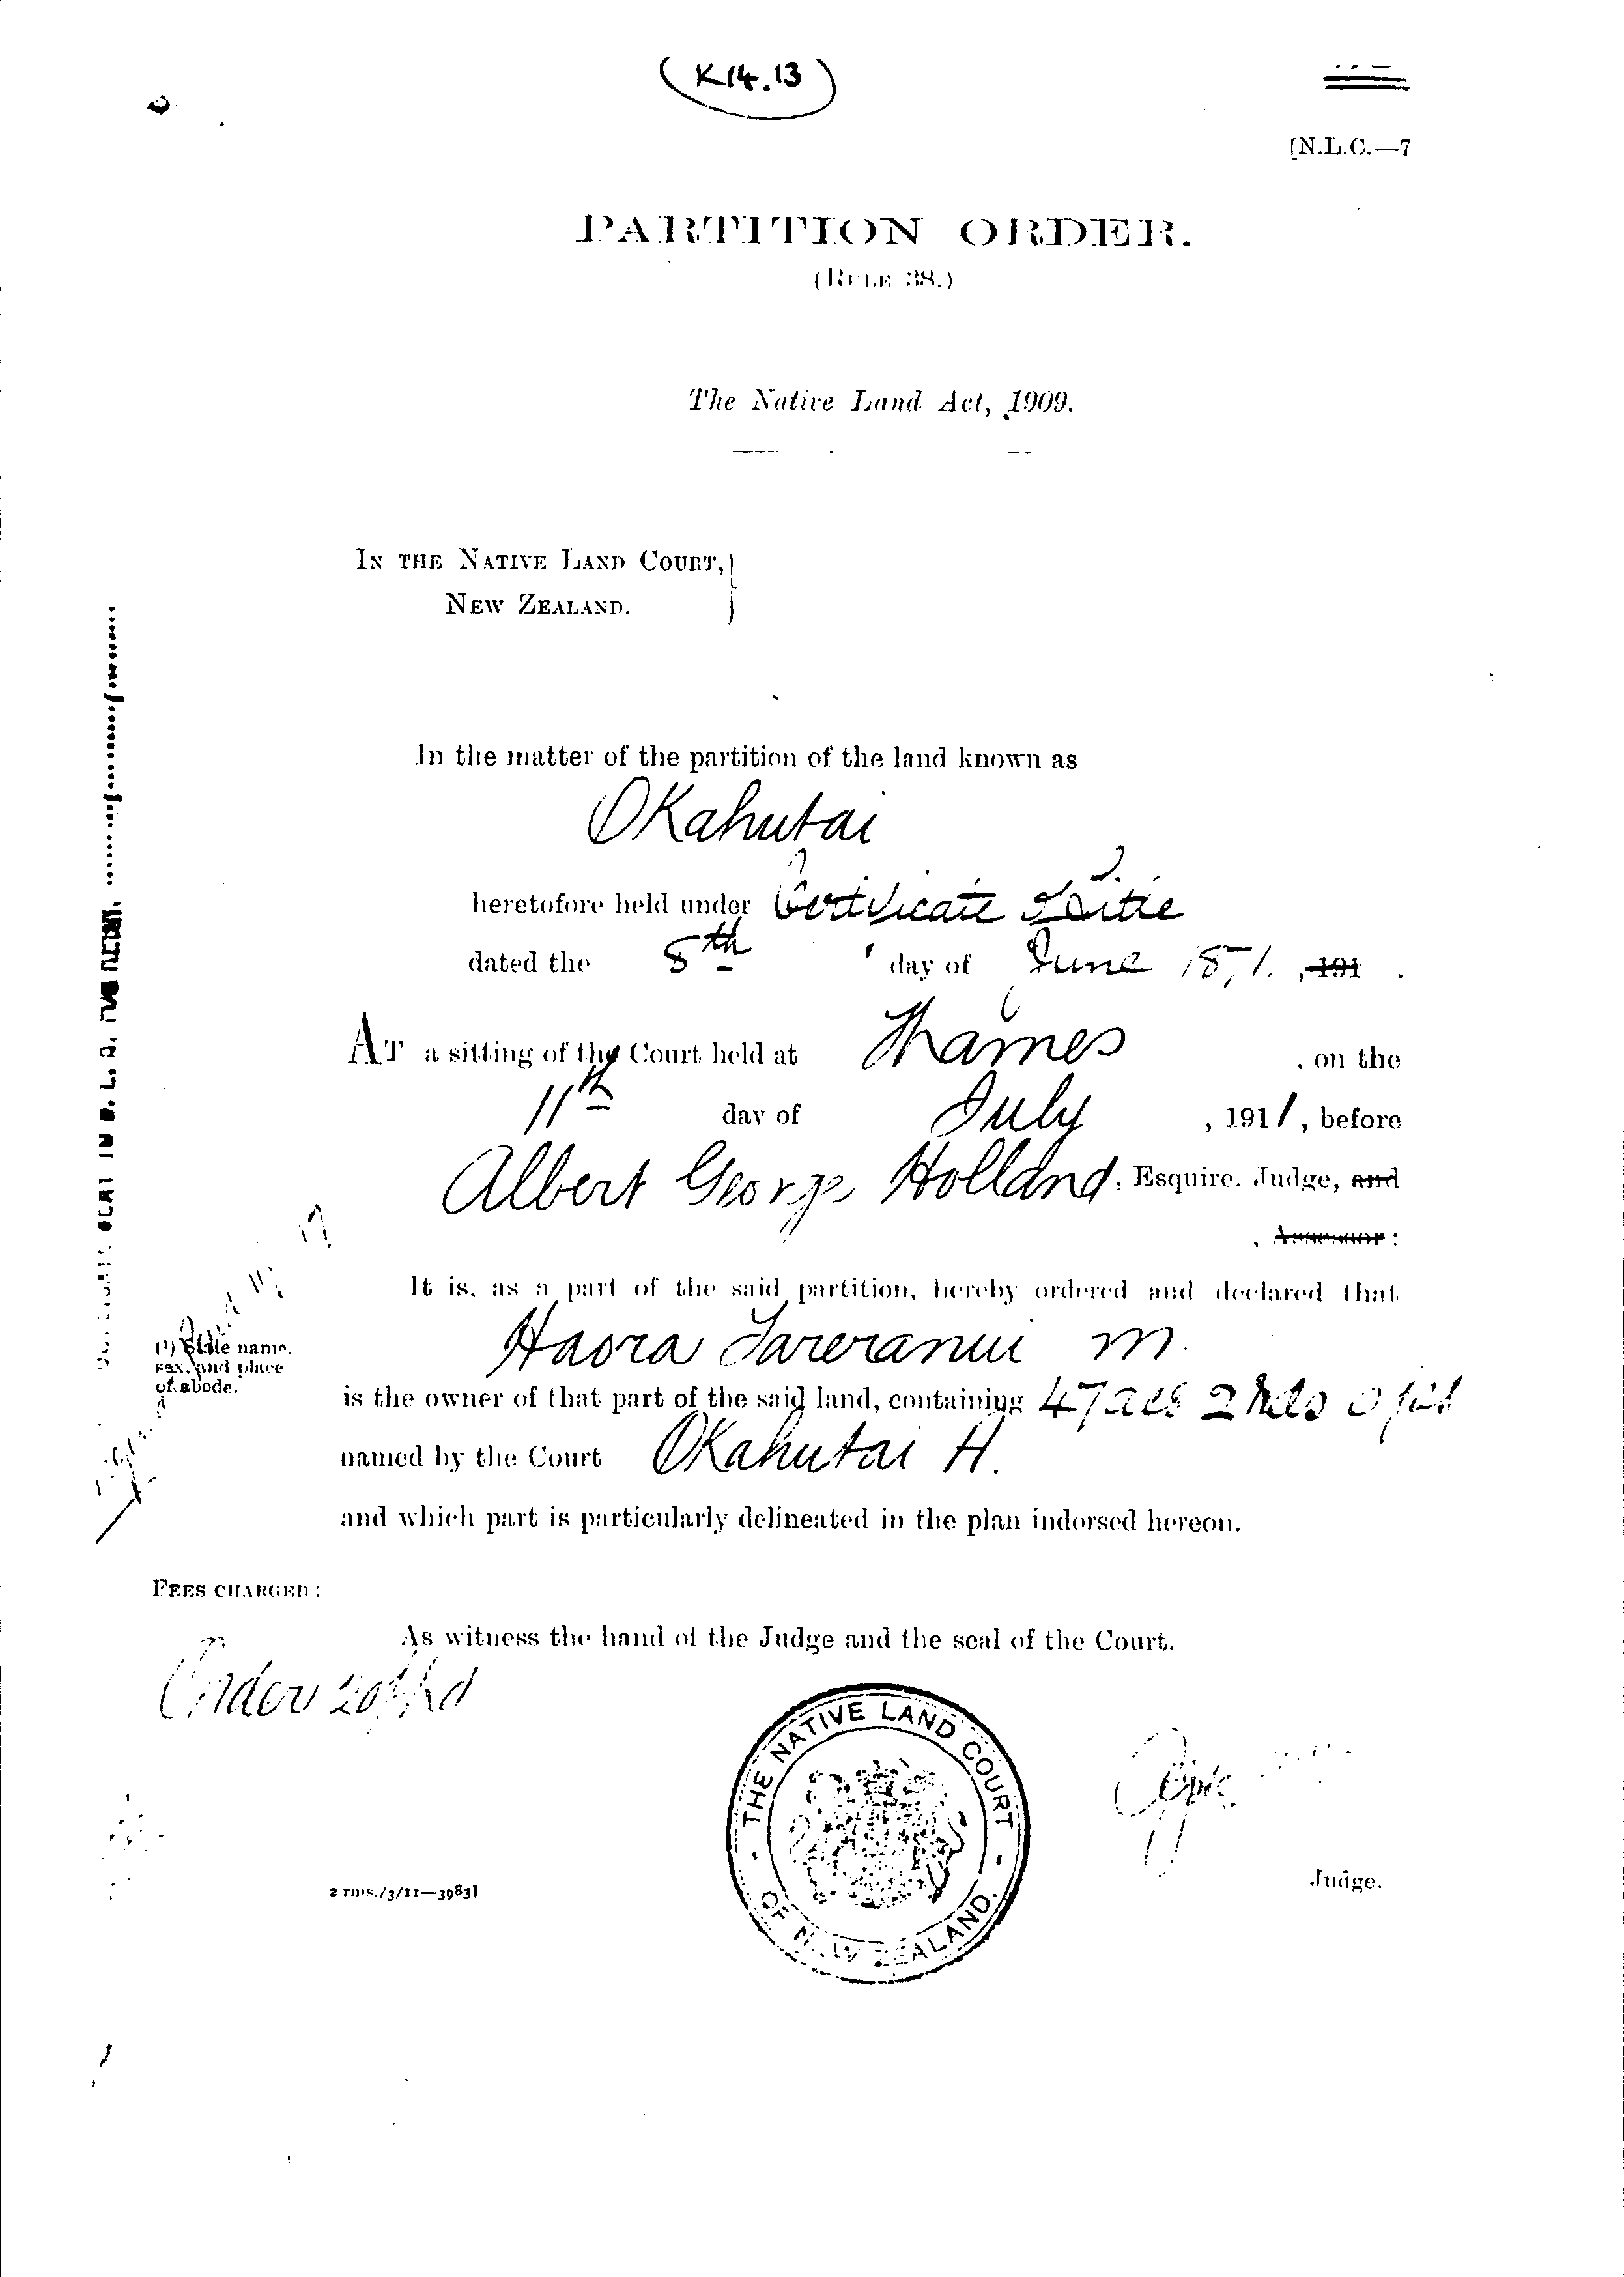 (K14.13)
[N.L.C.—7
PARTITION ORDER.
(RULE 38.)
The Native Land Act, 1909.
IN THE NATIVE LAND COURT,
NEW ZEALAND.
In the matter of the partition of the land known as
Okahutai
heretofore held under Certificate Title
dated the 8th day of June 1871. , 191 .
AT a sitting of the Court held at Thames , on the
11th day of July , 1911, before
Albert George Holland, Esquire, Judge, and
, Assessor:
It is, as a part of the said partition, hereby ordered and declared that
(1) State name,
sex, and place
of abode.
Haora Tareranui m.
is the owner of that part of the said land, containing 47 acs 2 rds 0 pchs
named by the Court Okahutai H.
and which part is particularly delineated in the plan indorsed hereon.
FEES CHARGED:
As witness the hand of the Judge and the seal of the Court.
Order
THE NATIVE LAND COURT
OF NEW ZEALAND
Judge.
2 rms./3/11—3983]